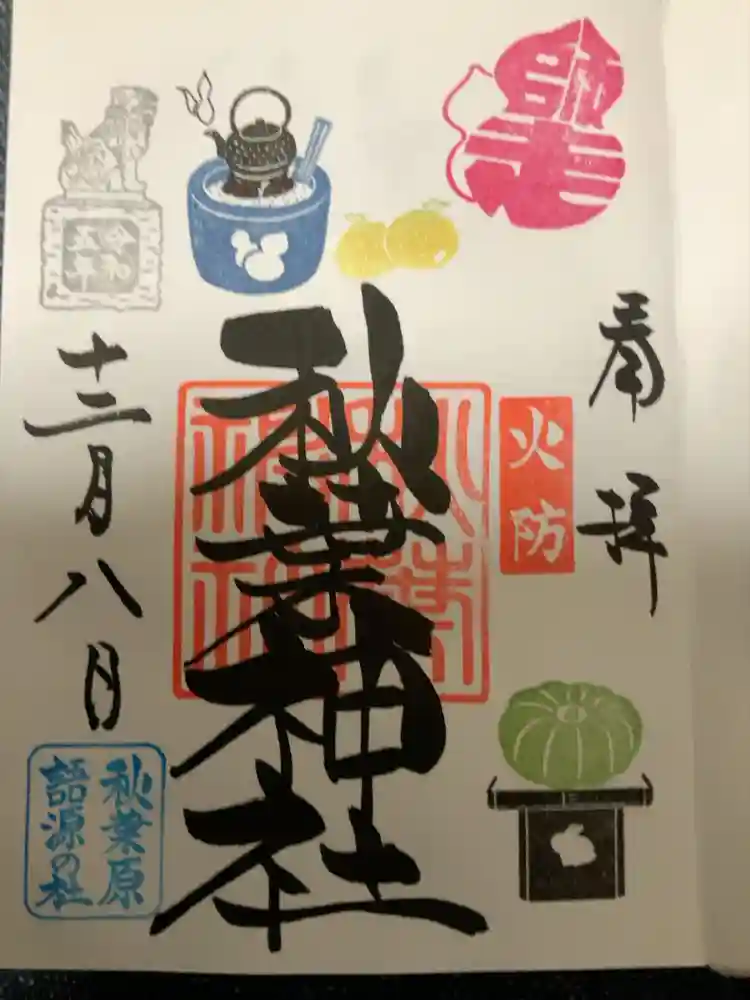 師走
奉拝
火防
秋葉神社
令和
五年
十二月八日
秋葉原
語源の社